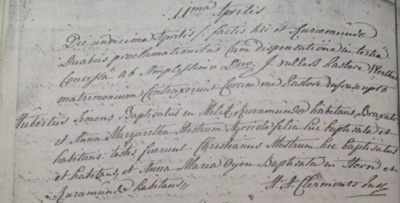 11ma Aprilis
Die undecima Aprilis, factis hic et Ruraemundae
Duabus proclamationibus cum dispensatione in tertia
Concessa ab Amplissimo Dno J. Pastore
matrimonium Contraxerunt Coram me Pastore infrascripto
Hubertus Simons Baptisatus in Melick Ruraemundae habitans,
et Anna Margaretha Mestrum hic baptisata et
habitans testes fuerunt Christianus Mestrum hic baptisatus
et habitans, et Anna Maria Baptisata in Horn et
Ruraemundae habitans,
H. A. Clermonts